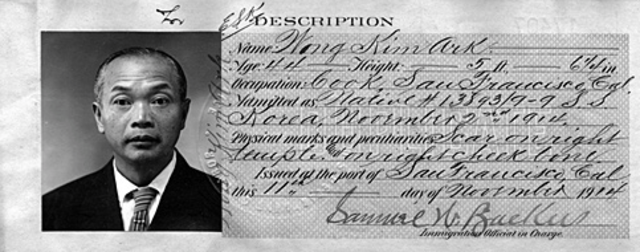 DESCRIPTION
Name, Wong Kim Ark.
Age, 44 Height, 5 ft. 6¾ in
Occupation, Cook, San Francisco, Cal.
Admitted as Native #13893/9-9 S.S
Korea, November 2nd 1914
Physical marks and peculiarities Scar on right
temple on right cheek bone
Issued at the port of San Francisco, Cal
this 11th day of November 1914
Samuel W Backus
Immigration Official in Charge.